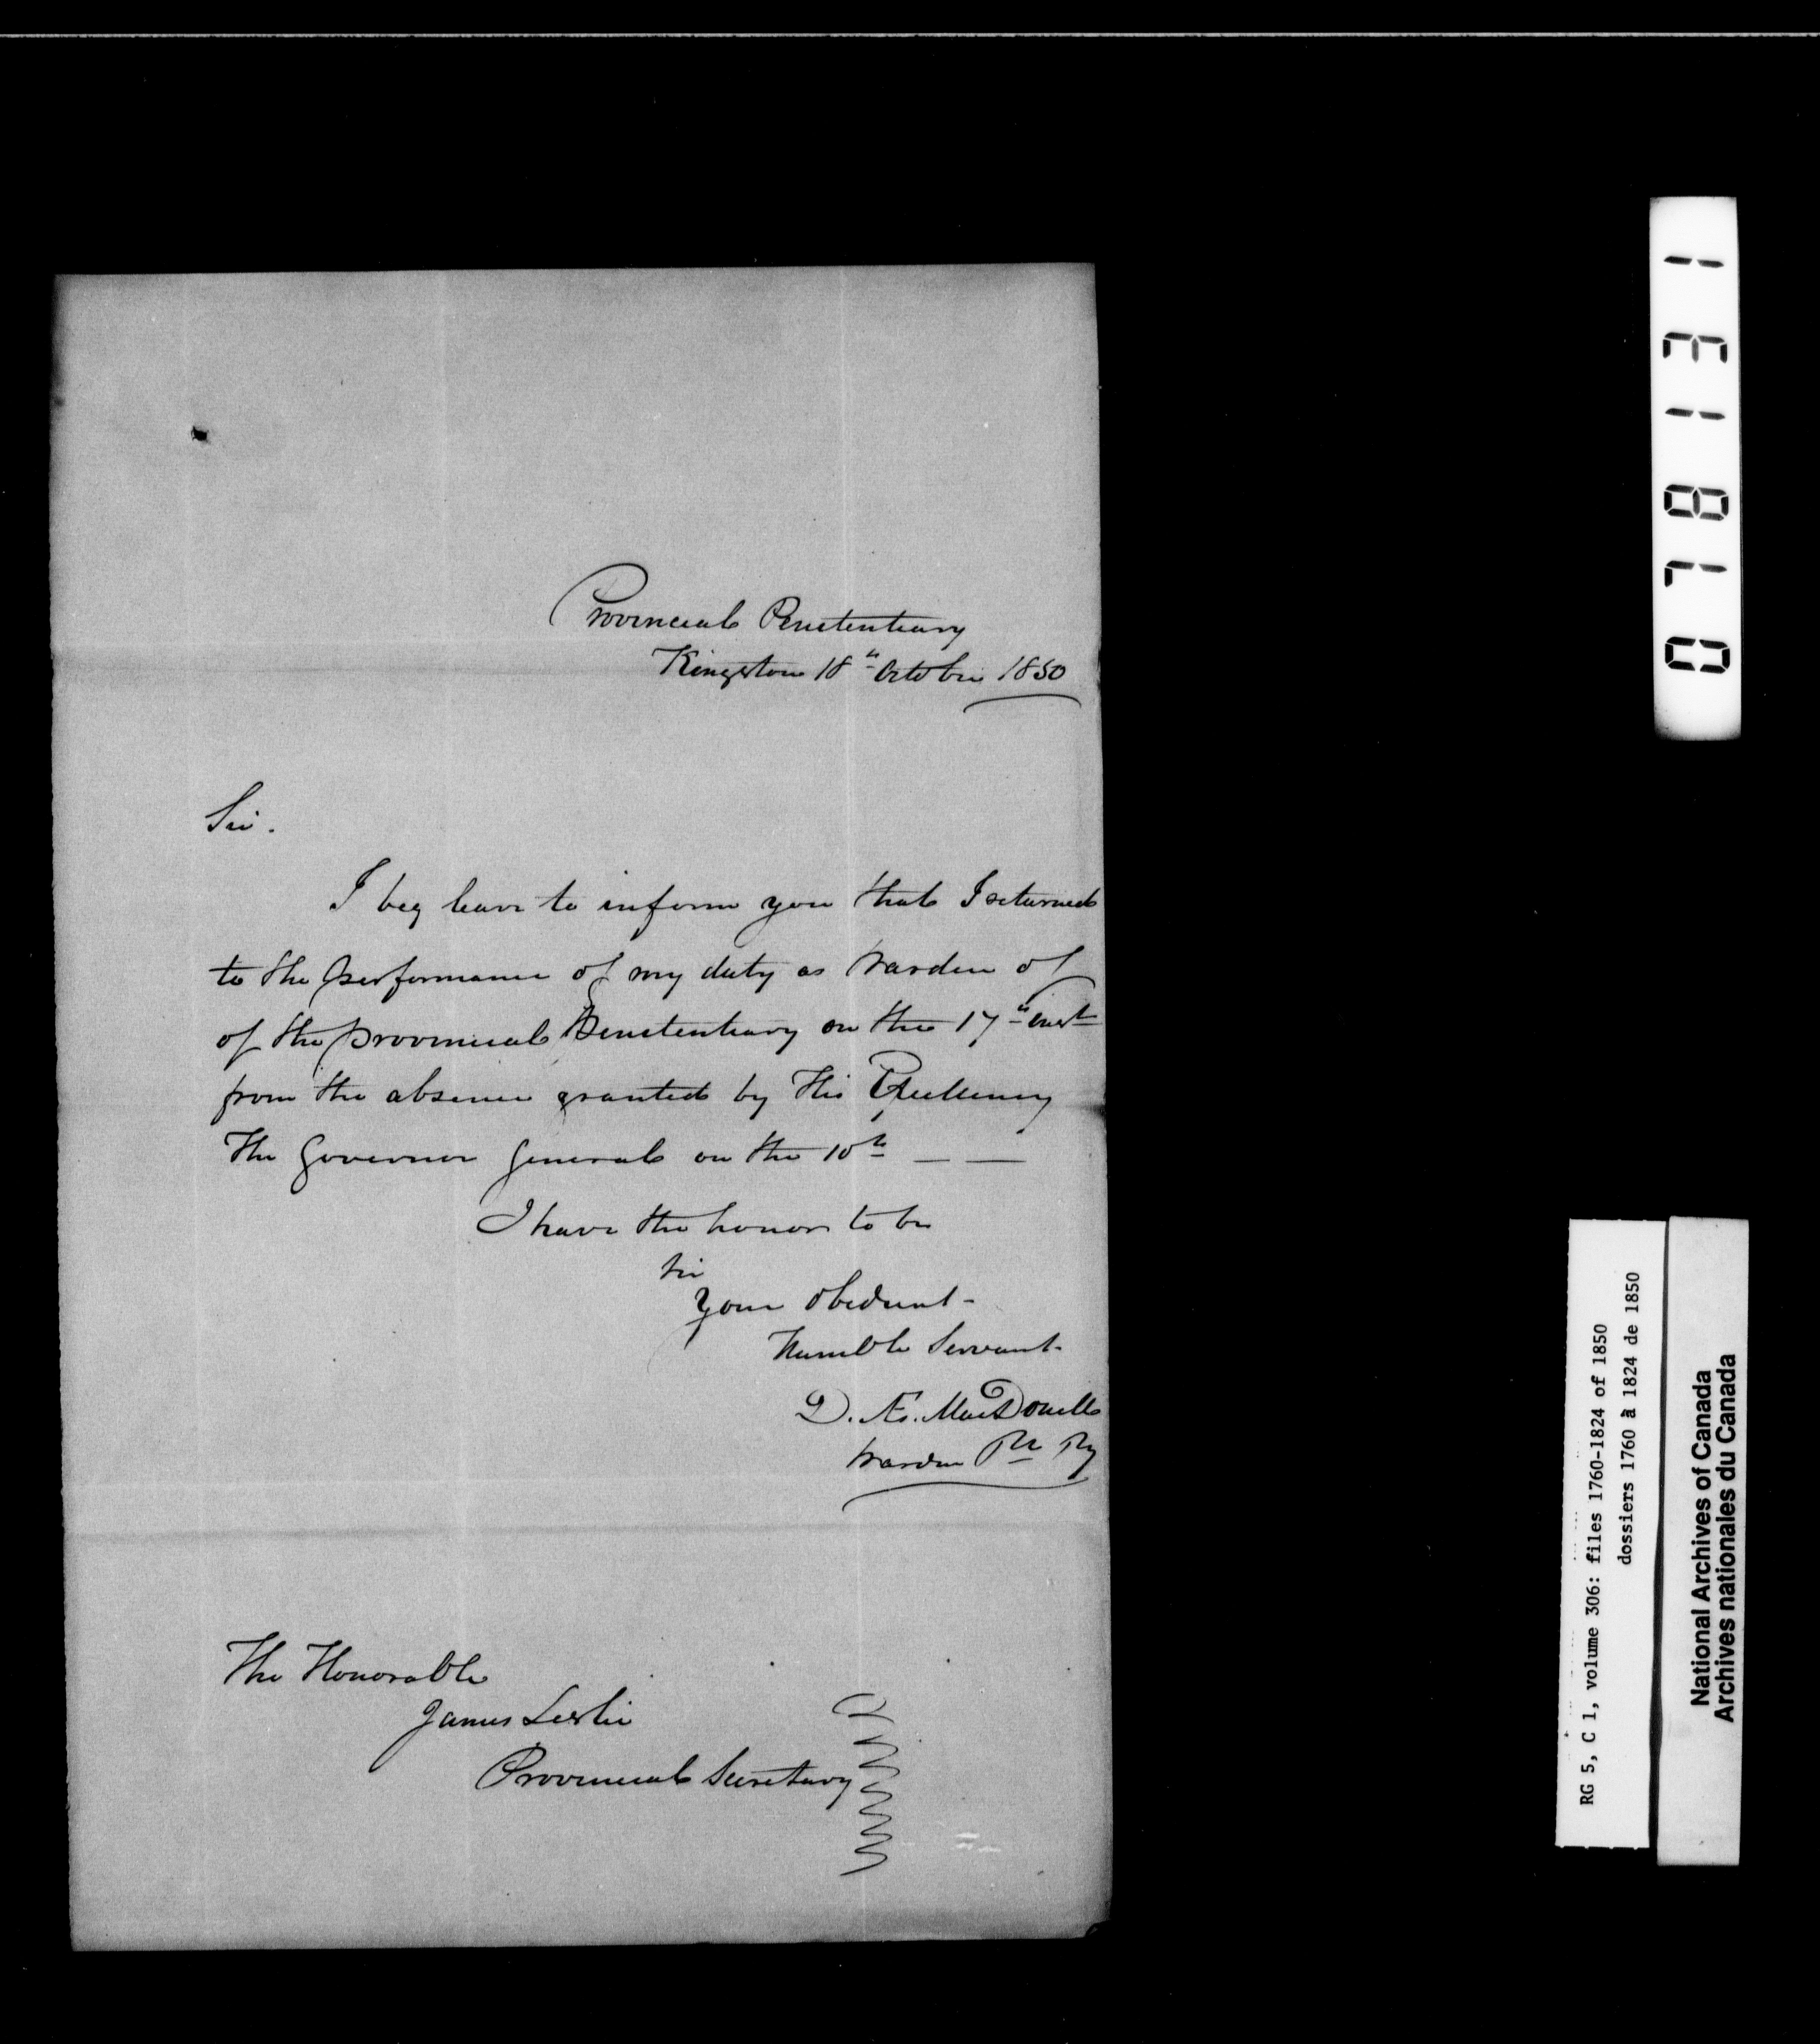 Provincial Penitentiary
Kingston 18th October 1850
Sir.
I beg leave to inform you that I returned
to the performance of my duty as Warden of
of the Provincial Penitentiary on the 17th inst
from the absence granted by His Excellency
The Governor General on the 10th — —
I have the honor to be
Sir
Your Obedient
Humble Servant
D. Æ. MacDonell
Warden Pl Py
The Honorable
James Leslie
Provincial Secretary
078131
RG 5, C 1, volume 306: files 1760-1824 of 1850
dossiers 1760 à 1824 de 1850
National Archives of Canada
Archives nationales du Canada